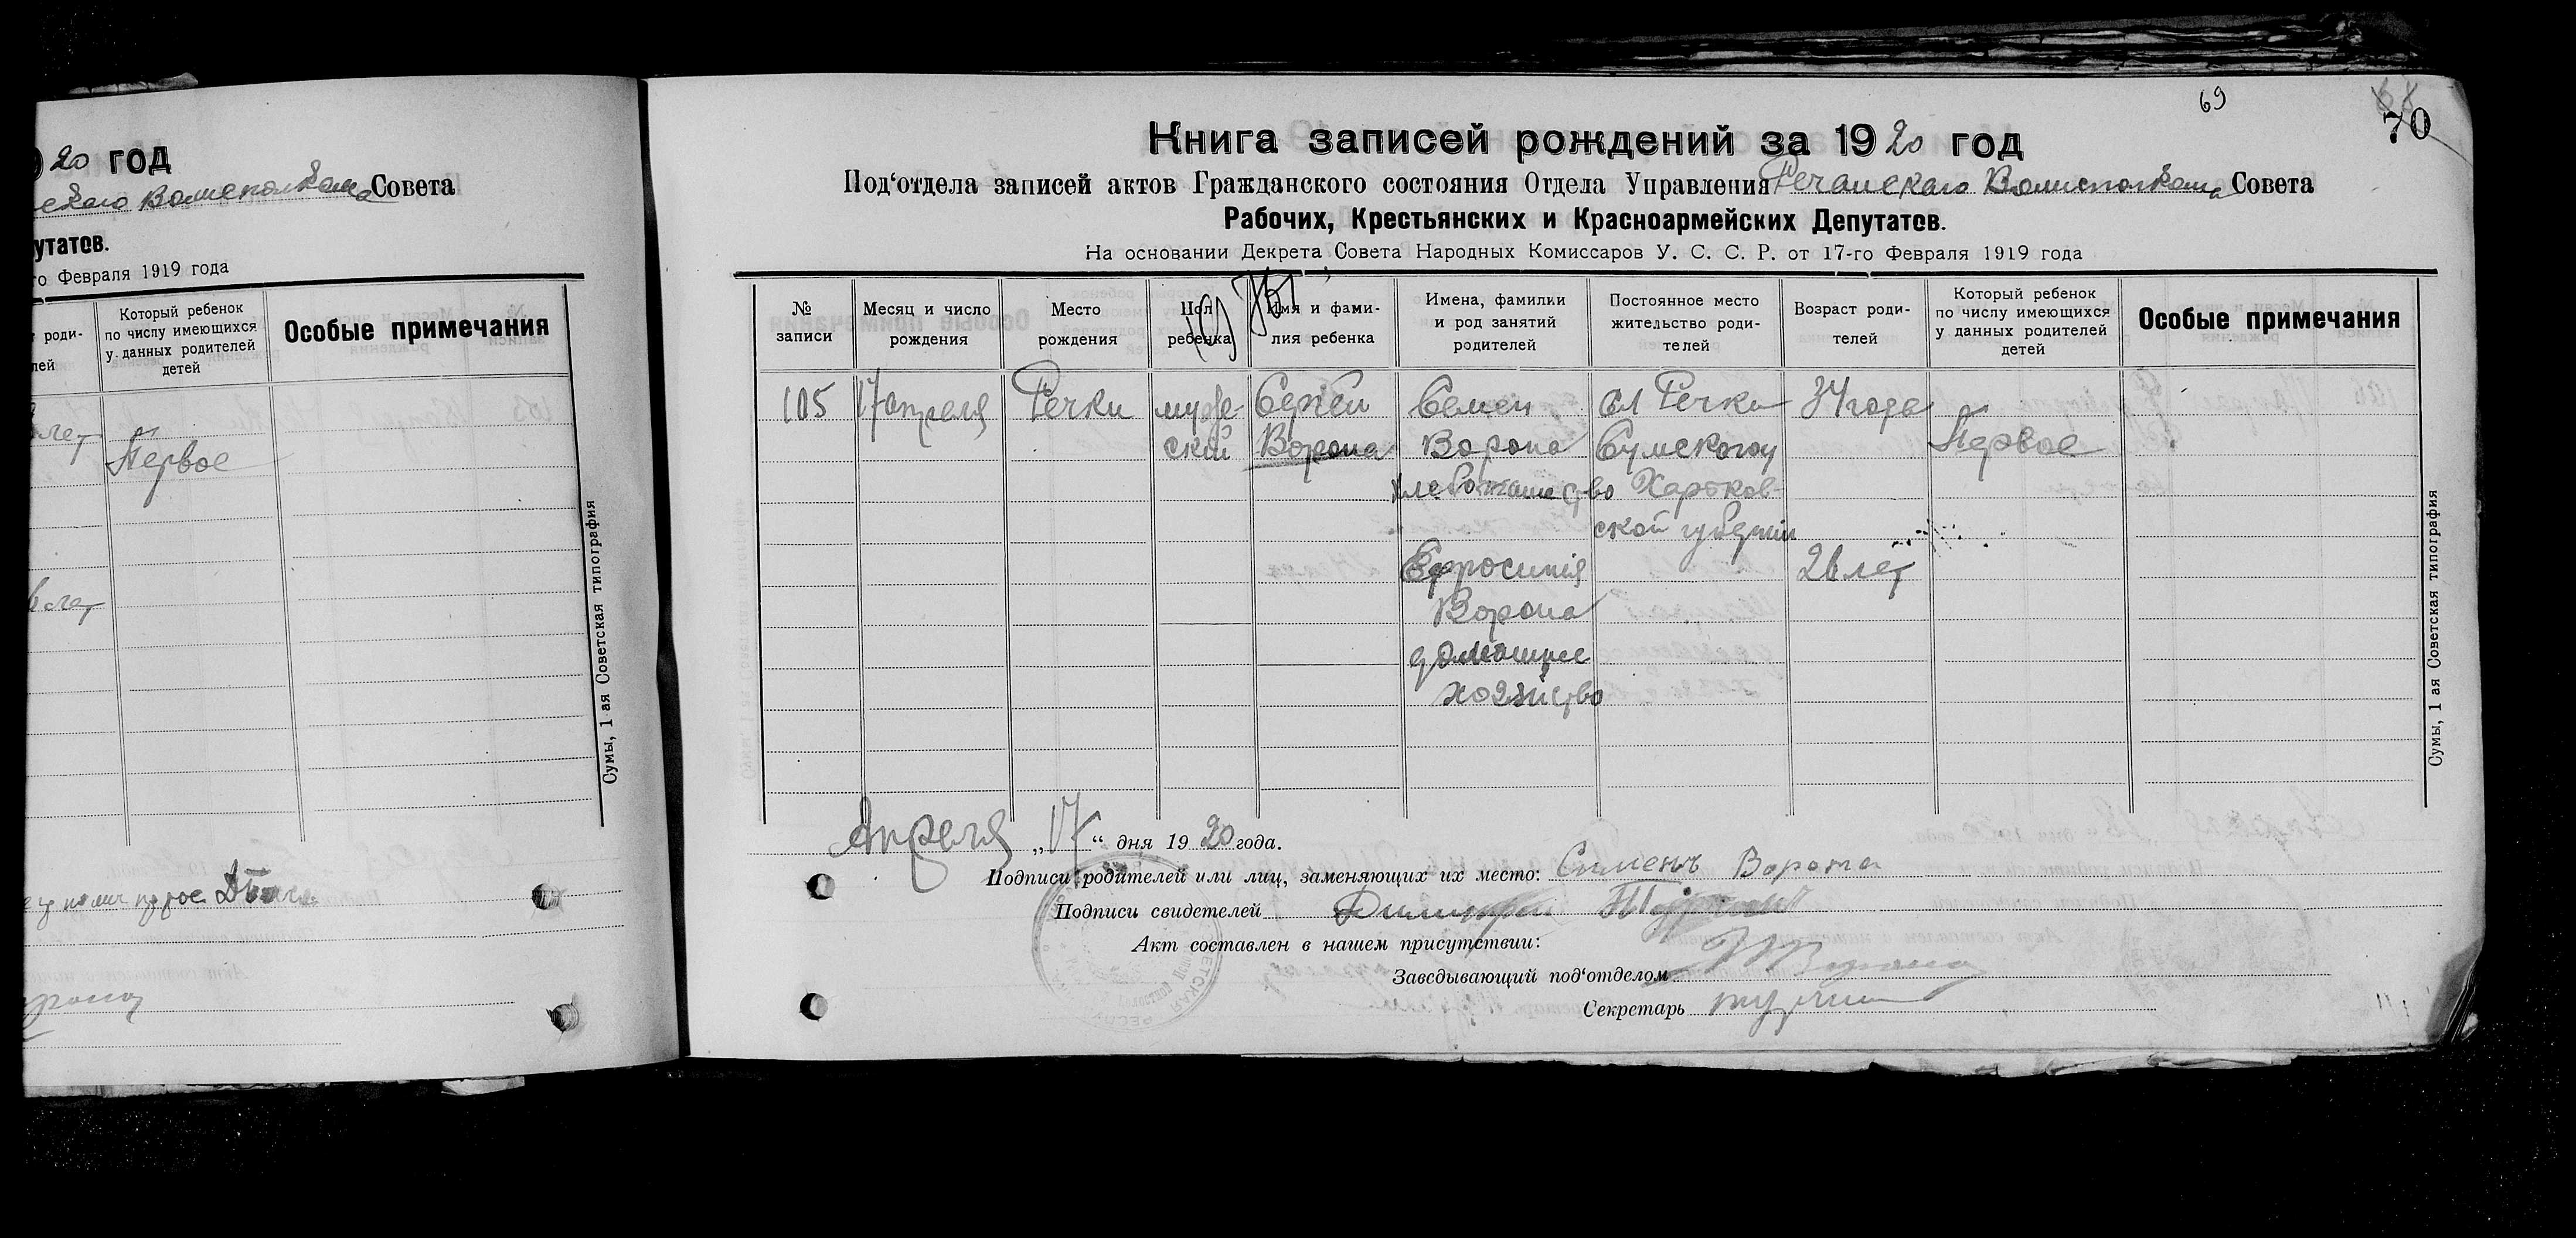 20 год
Совета
утатов.
го Февраля 1919 года
роди-
лей
Который ребенок
по числу имеющихся
у данных родителей
детей
Особые примечания
лет
Первое
лет
Сумы, 1 ая Советская типография
69
70
Книга записей рождений за 1920 год
Под‘отдела записей актов Гражданского состояния Отдела Управления Речанскаго Волисполкома Совета
Рабочих, Крестьянских и Красноармейских Депутатов.
На основании Декрета Совета Народных Комиссаров У. С. С. Р. от 17-го Февраля 1919 года
№
записи
Месяц и число
рождения
Место
рождения
Пол
ребенка
Имя и фами-
лия ребенка
Имена, фамилии
и род занятий
родителей
Постоянное место
жительство роди-
телей
Возраст роди-
телей
Который ребенок
по числу имеющихся
у данных родителей
детей
Особые примечания
105 17 апреля Речки муже- Сергей Семен сл Речки 34 года
ский Ворона Ворона Сумского у Первое
хлебопашество Харьков-
ской губернии
Ефросиния 26 лет
Ворона
домашнее
хозяйство
Сумы, 1 ая Советская типография
Апреля „17“ дня 1920 года.
Подписи родителей или лиц, заменяющих их место: Сименъ Ворона
Подписи свидетелей Димитрий
Акт составлен в нашем присутствии:
Заведывающий под‘отделом Ворона
Секретарь